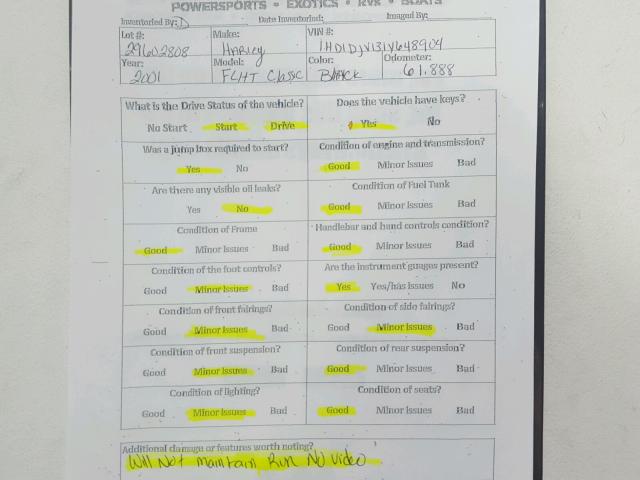 POWERSPORTS - EXOTICS - RVs - BOATS
Inventoried By: Date Inventoried: Imaged By:
Lot #: Make: VIN #:
29602808 Harley
Year: Model: Color: Odometer:
2001 FLHT Classic Black 61,888
What is the Drive Status of the vehicle? Does the vehicle have keys?
No Start Start Drive Yes No
Was a jump box required to start? Condition of engine and transmission?
Yes No Good Minor Issues Bad
Are there any visible oil leaks? Condition of Fuel Tank
Yes No Good Minor Issues Bad
Condition of Frame Handlebar and hand controls condition?
Good Minor Issues Bad Good Minor Issues Bad
Condition of the foot controls? Are the instrument guages present?
Good Minor Issues Bad Yes Yes/has Issues No
Condition of front fairings? Condition of side fairings?
Good Minor Issues Bad Good Minor Issues Bad
Condition of front suspension? Condition of rear suspension?
Good Minor Issues Bad Good Minor Issues Bad
Condition of lighting? Condition of seats?
Good Minor Issues Bad Good Minor Issues Bad
Additional damage or features worth noting?
Will Not maintain Run No video